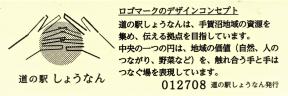 ロゴマークのデザインコンセプト
道の駅しょうなんは、手賀沼地域の資源を
集め、伝える拠点を目指しています。
中央の一つの円は、地域の価値（自然、人の
つながり、野菜など）を、触れ合う手と手は
つなぐ場を表現しています。
道の駅 しょうなん
012708 道の駅しょうなん発行